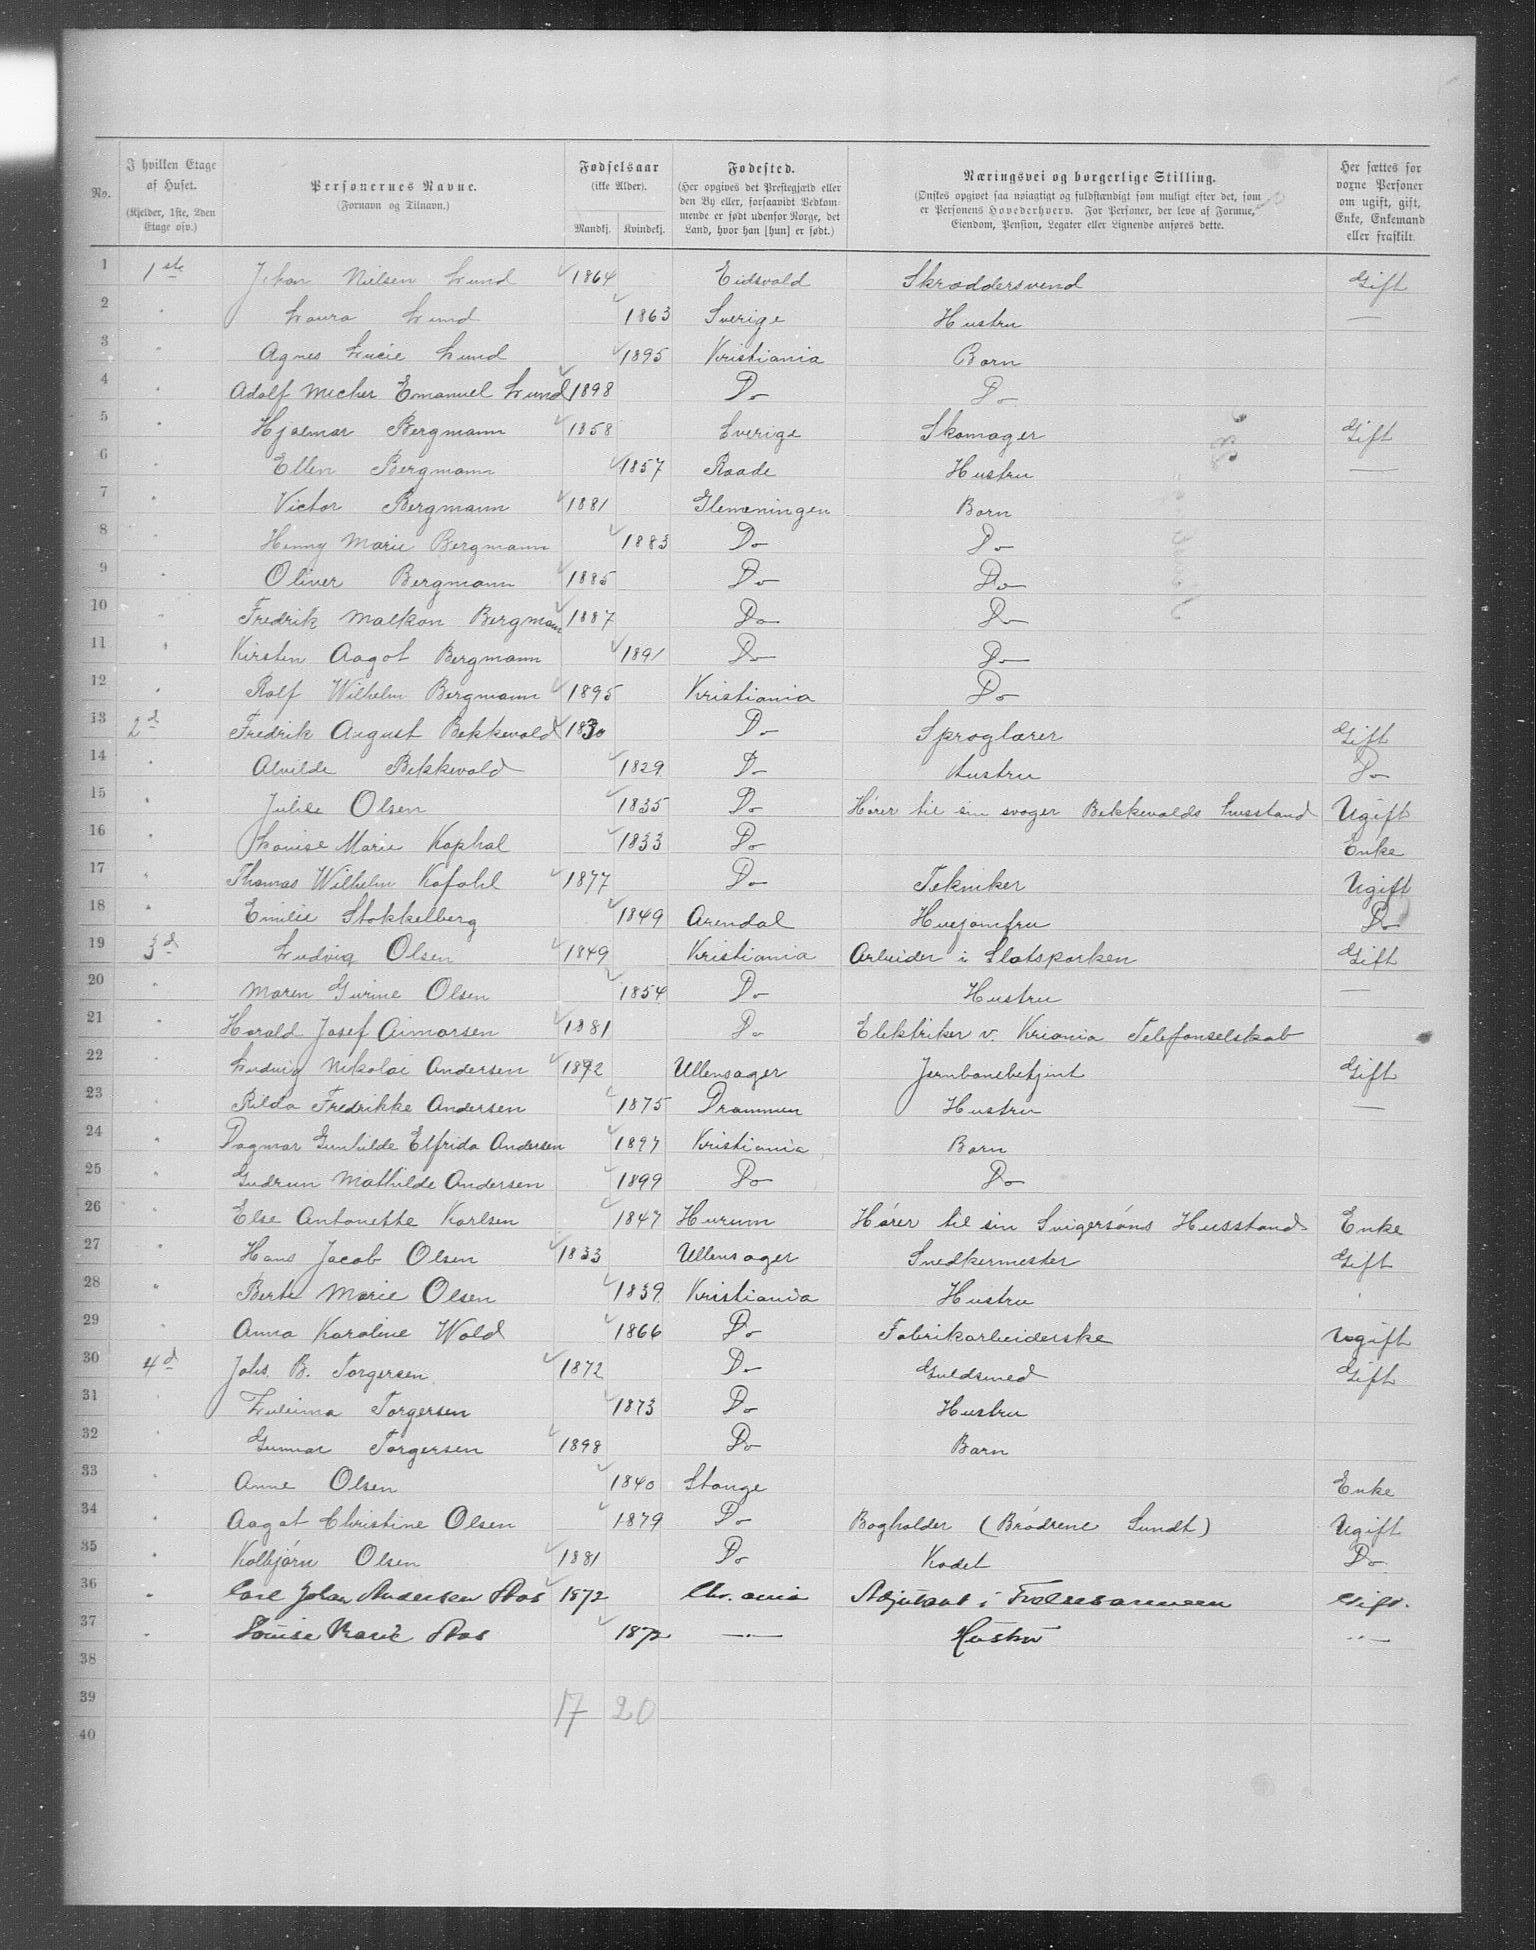 No. I hvilken Etage af Huset. (Kjelder, 1ste, 2den Etage osv.) Personernes Navne. (Fornavn og Tilnavn.) Fødselsaar (ikke Alder). Mandkj. Kvindekj. Fødested. (Her opgives det Prestegjæld eller den By eller, forsaavidt Vedkommende er født udenfor Norge, det Land, hvor han [hun] er født.) Næringsvei og borgerlige Stilling. (Ønskes opgivet saa nøiagtigt og fuldstændigt som muligt efter det, som er Personens Hovederhverv. For Personer, der leve af Formue, Eiendom, Pension, Legater eller Lignende anføres dette. Her sættes for voxne Personer om ugift, gift, Enke, Enkemand eller fraskilt.
1 1ste Johan Nielsen Lund 1864 Eidsvold Skræddersvend Gift
2 " Laura Lund 1863 Sverige Hustru —
3 " Agnes Lucie Lund 1895 Kristiania Barn
4 " Adolf Emanuel Lund 1898 Do Do
5 " Hjalmar Bergmann 1858 Sverige Skomager Gift
6 " Ellen Bergmann 1857 Raade Hustru —
7 " Victor Bergmann 1881 Glemeningen Barn
8 " Henny Marie Bergmann 1883 Do Do
9 " Oliver Bergmann 1885 Do Do
10 " Fredrik Malkon Bergmann 1887 Do Do
11 " Kirsten Aagot Bergmann 1891 Do Do
12 " Rolf Wilhelm Bergmann 1895 Kristiania Do
13 2d Fredrik August Bekkevold 1830 Do Sproglærer Gift
14 " Alvilde Bekkevold 1829 Do Hustru Do
15 " Julie Olsen 1835 Do Hører til sin svoger Bekkevolds husstand Ugift
16 " Louise Marie Kaphal 1833 Do Enke
17 " Thomas Wilhelm Kafahl 1877 Do Tekniker Ugift
18 " Emilie Stokkelberg 1849 Arendal Husjomfru Do
19 3d Ludvig Olsen 1849 Kristiania Arbeider i Slotsparken Gift
20 " Maren Gurine Olsen 1854 Do Hustru —
21 " Harald Josef Aimarsen 1881 Do Elektriker v. Kriania Telefonselskab
22 " Ludvig Nikolai Andersen 1872 Ullensager Jernbanebetjent Gift
23 " Rilda Fredrikke Andersen 1875 Drammen Hustru —
24 " Dagmar Gunhilde Elfrida Andersen 1897 Kristiania Barn
25 " Gudrun Mathilde Andersen 1899 Do Do
26 " Else Antonette Karlsen 1847 Hurum Hører til sin Svigersøns Husstand Enke
27 " Hans Jacob Olsen 1833 Ullensager Snedkermester Gift
28 " Berte Marie Olsen 1839 Kristiania Hustru "
29 " Anna Karoline Wold 1866 Do Fabrikarbeiderske Ugift
30 4d Johs. B. Torgersen 1872 Do Guldsmed Gift
31 " Torgersen 1873 Do Hustru
32 " Gunnar Torgersen 1898 Do Barn
33 " Anne Olsen 1840 Stange Enke
34 " Aagot Christine Olsen 1879 Do Bogholder (Brødrene Sundt) Ugift
35 " Kolbjørn Olsen 1881 Do Kadet Do
36 " Carl Johan Andersen Aas 1872 Chr.ania Adjutant i Frelsesarmeen Gift.
37 " Louise Marie Aas 1872 — " — Hustru — " —
38
39 17 20
40